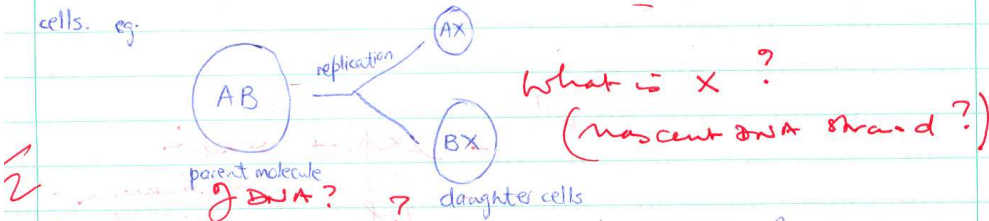 cells. eg.
AX
replication
AB
What is X ?
(nascent DNA strand ?)
BX
parent molecule
daughter cells
of DNA? ?